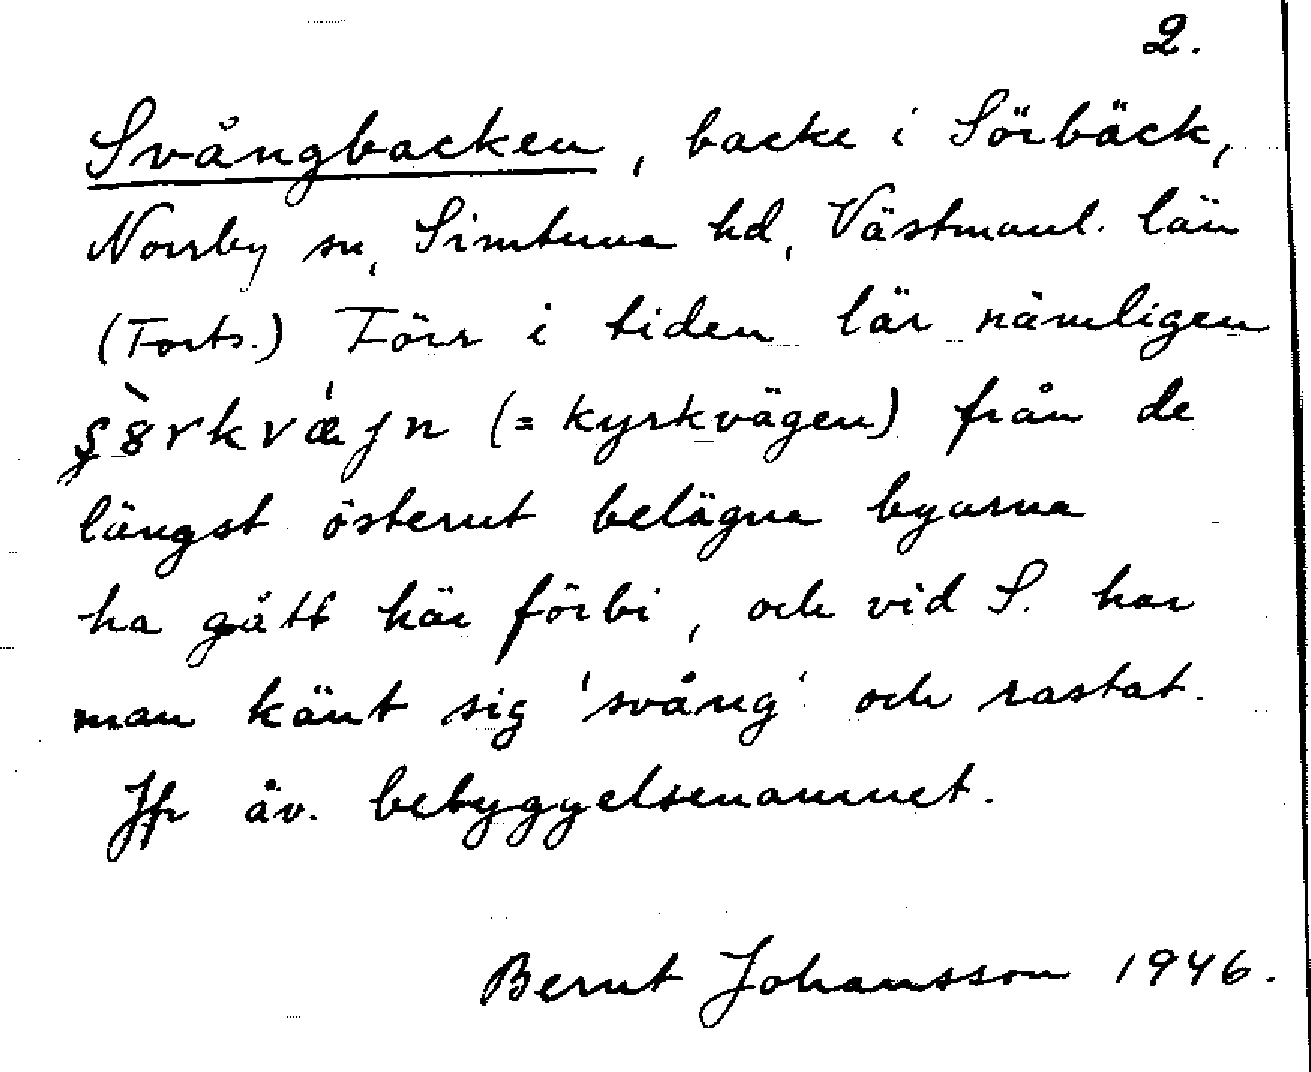 2.
Svångbacken, backe i Sörbäck,
Norrby sn, Simtuna hd, Västmanl. län
(Forts.) Förr i tiden lär nämligen
(= kyrkvägen) från de
längst österut belägna byarna
ha gått här förbi, och vid S. har
man känt sig 'svång' och rastat.
Jfr äv. bebyggelsenamnet.
Bernt Johansson 1946.